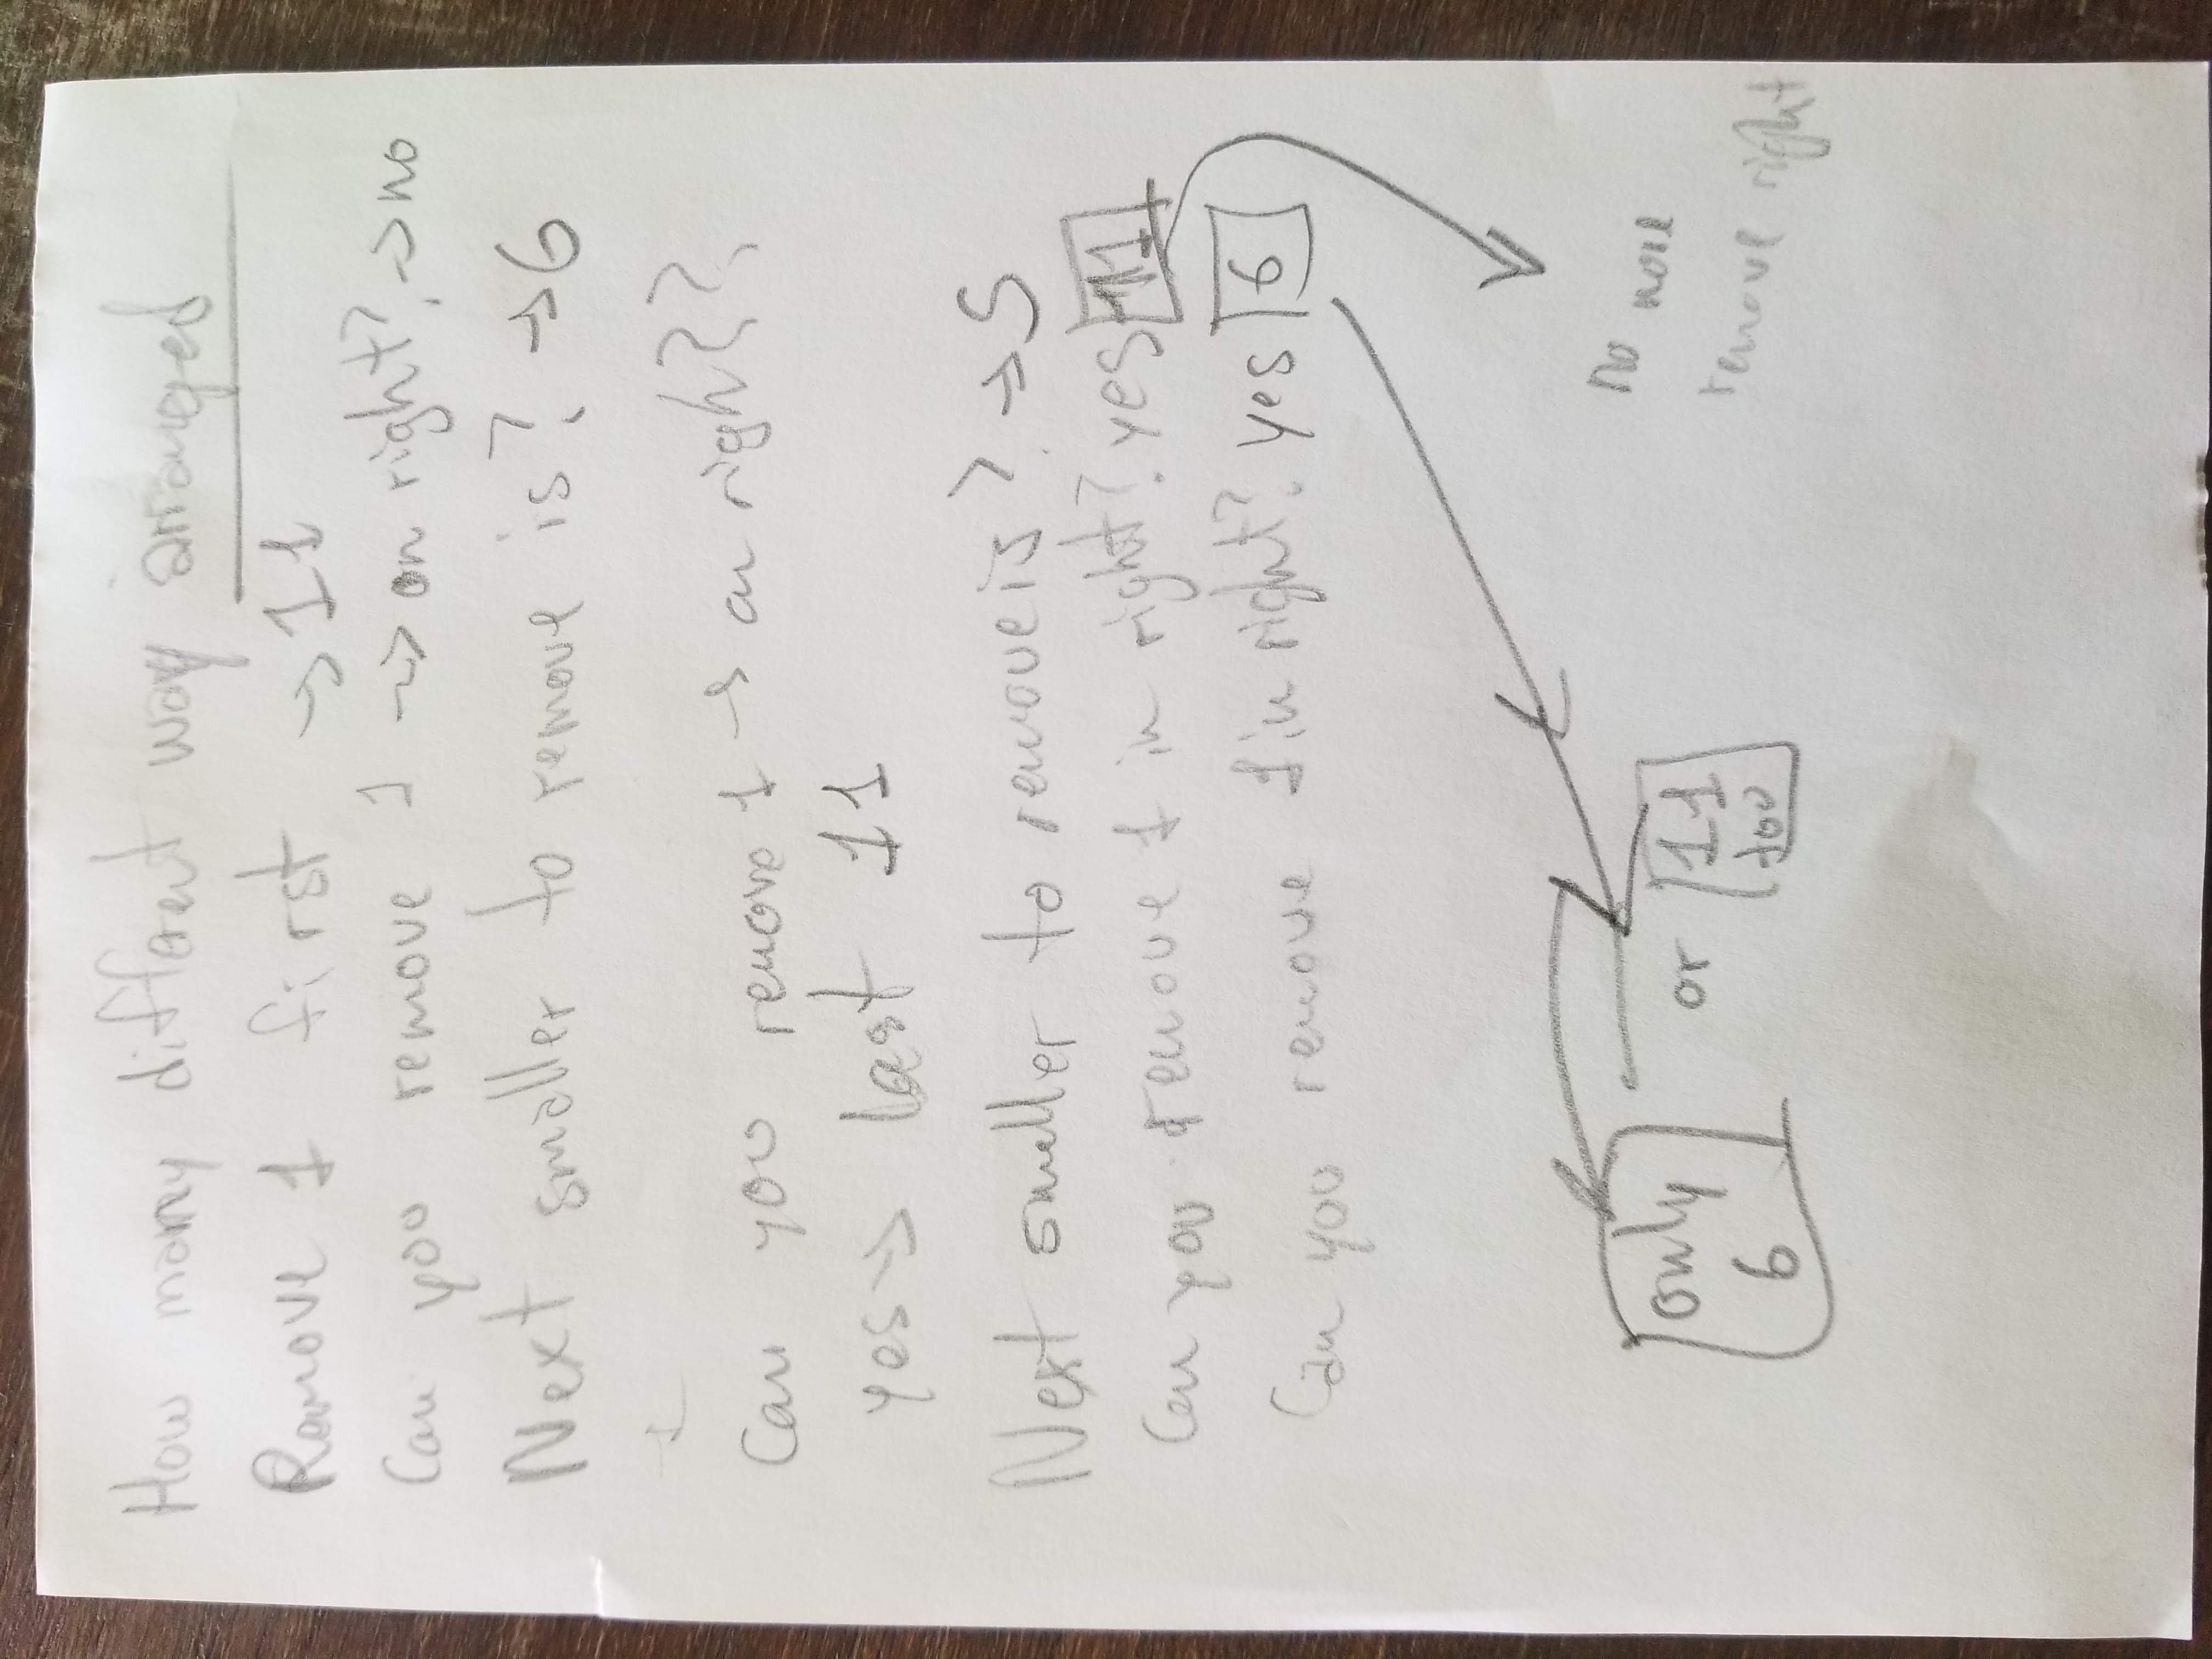 How many different way arranged
Remove 1 first → 11
Can you remove 1 → on right? → no
Next smaller to remove is? → 6
1
Can you remove 1 → on right??
yes → last 11
Next smaller to remove is? → 5
Can you remove 1 in right? yes 11
Can you remove 1 in right? yes 6
only
6
or
11
too
no more
remove right